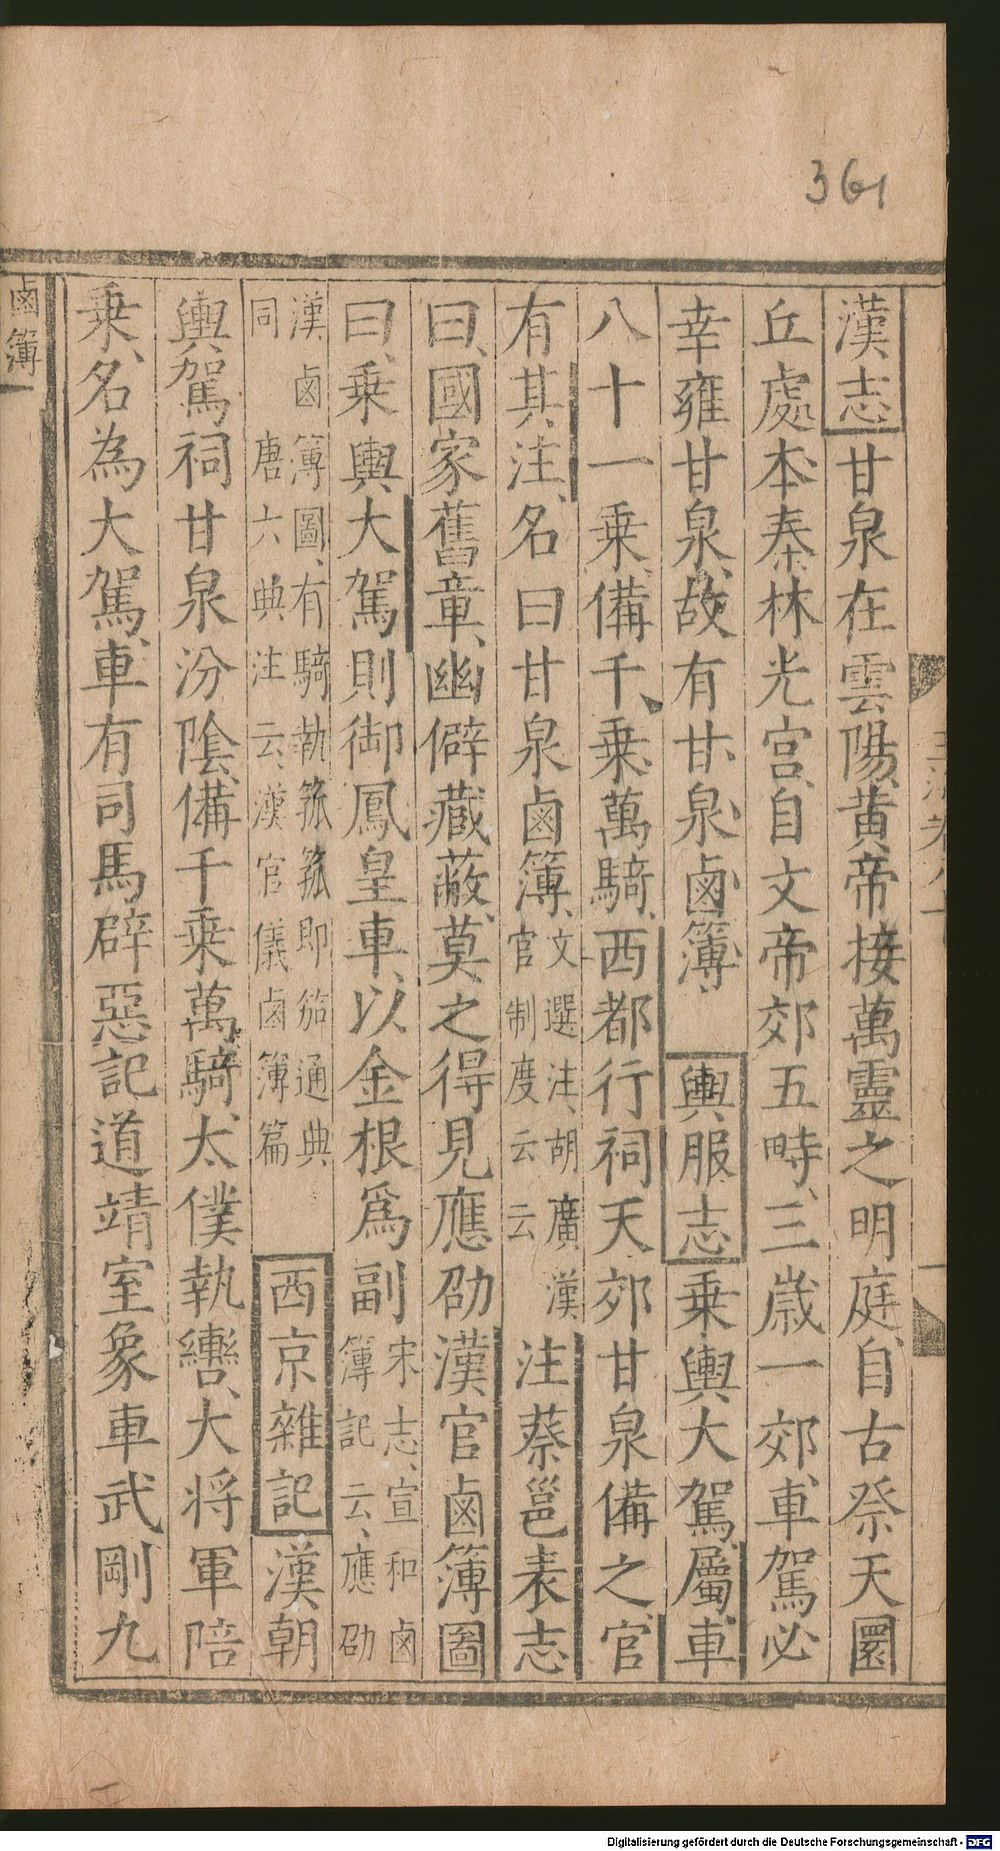 361
漢志甘泉在雲陽黃帝接萬靈之明庭自古祭天圜
丘處本秦林光宮自文帝郊五畤三歲一郊車駕必
幸雍甘泉故有甘泉鹵簿 輿服志乘輿大駕屬車
八十一乘備千乘萬騎西都行祠天郊甘泉備之官
有其注名曰甘泉鹵簿文選注胡廣漢官制度云云注蔡邕表志
曰國家舊章幽僻藏蔽莫之得見應劭漢官鹵簿圖
曰乘輿大駕則御鳳皇車以金根爲副宋志宣和鹵簿記云應劭
漢鹵簿圖有騎執箛箛即笳通典同唐六典注云漢官儀鹵簿篇 西京雜記漢朝
輿駕祠甘泉汾陰備千乘萬騎太僕執轡大將軍陪
乘名為大駕車有司馬辟惡記道靖室象車武剛九
鹵簿
Digitalisierung gefördert durch die Deutsche Forschungsgemeinschaft - DFG